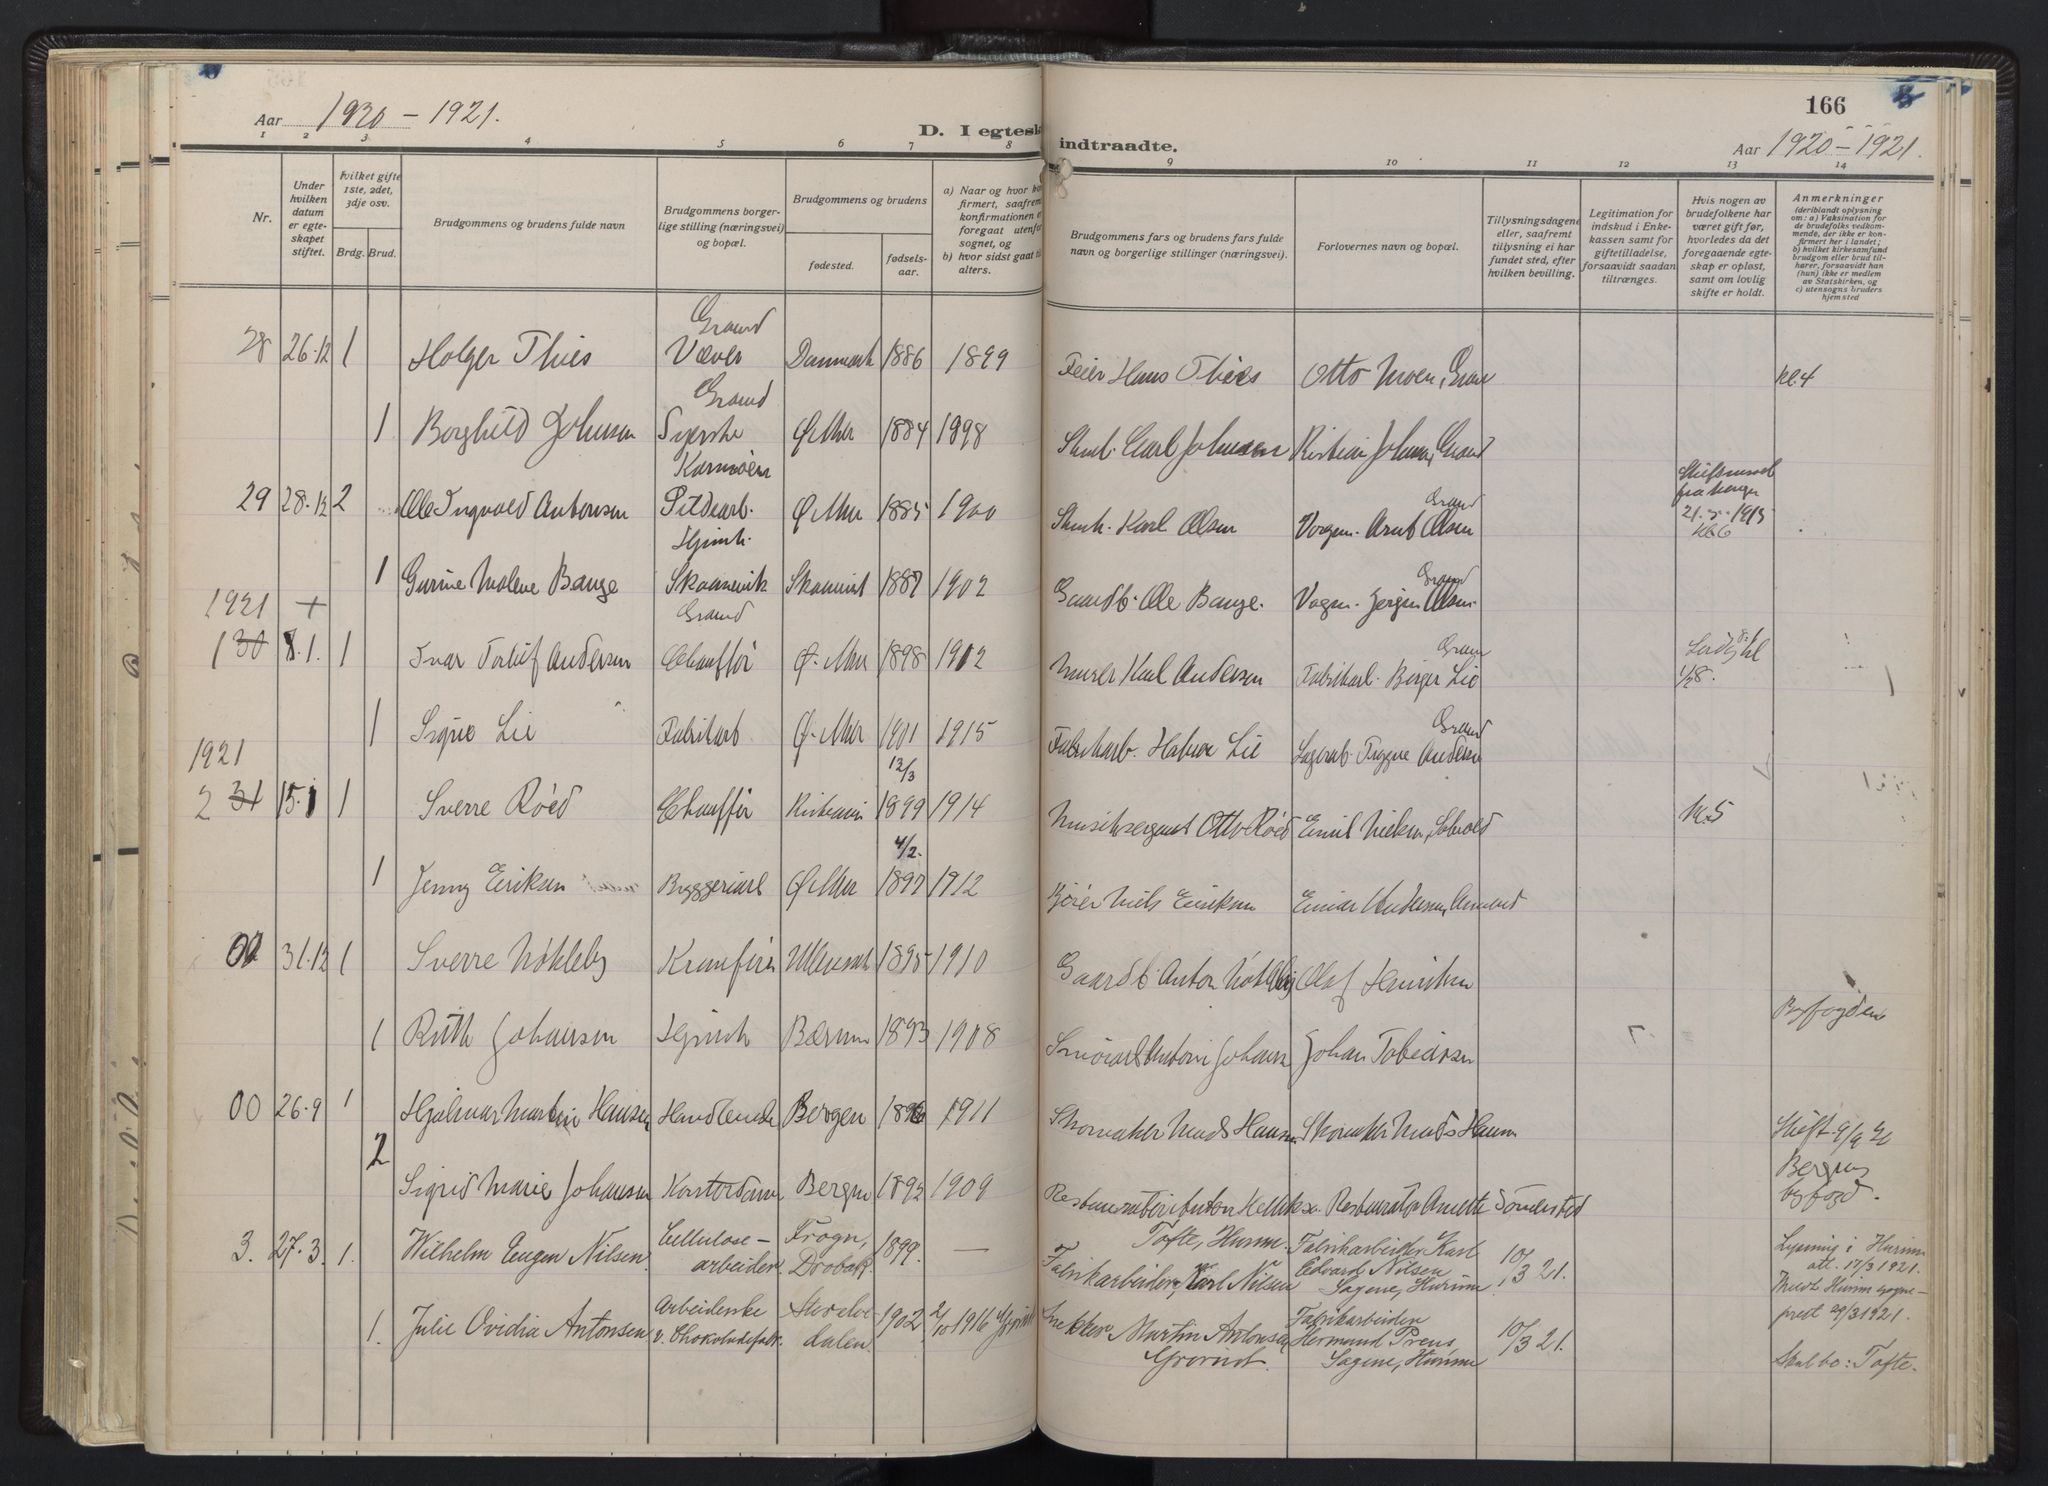 Aar 1920 – 1921.
D. I egtesk
indtraadte.
166
Aar 1920 – 1921.
1 2 3 4 5 6 7 8 9 10 11 12 13 14
Nr.
Under hvilken datum er egteskapet stiftet.
Hvilket gifte 1ste, 2det, 3dje osv.
Brdg. Brud.
Brudgommens og brudens fulde navn
Brudgommens borgerlige stilling (næringsvei) og bopæl.
Brudgommens og brudens
fødested.
fødselsaar.
a) Naar og hvor
firmert, saafrem
konfirmationen
foregaat utenfor
sognet, og
b) hvor sidst gaat til
alters.
Brudgommens fars og brudens fars fulde navn og borgerlige stillinger (næringsvei).
Forlovernes navn og bopæl.
Tillysningsdagene eller, saafremt tillysning ei har fundet sted, efter hvilken bevilling.
Legitimation for indskud i Enkekassen samt for giftetilladelse, forsaavidt saadan tiltrænges.
Hvis nogen av brudefolkene har været gift før, hvorledes da det foregaaende egteskap er opløst, samt om lovlig skifte er holdt.
Anmerkninger
(deriblandt oplysning om: a) Vaksination for de brudefolks vedkommende, der ikke er konfirmert her i landet; b) hvilket kirkesamfund brudgom eller brud tilhører, forsaavidt han (hun) ikke er medlem av Statskirken, og c) utensogns bruders hjemsted
28 26.12 1 Holger Thies Grand Væver Danmark 1886 1899 Feier Hans Thies Otto Moen, kl.4
1 Borghild Johnsen Grand Syerske Ø. Aker 1884 1898 Carl Johnsen Kristian Johnsen, Grand
29 28.12 2 Ole Ingvald Antonsen Ø. Aker 1885 1900 Karl Olsen Vogn. Arnt Olsen Grand
21.5.1915
1 Gurine Malene Bauge Hjemh. Skaanevik 1887 1902 Gaardb. Ole Bauge. Vogn. Jørgen Olsen Grand
1921 +
1 30 8.1. 1 Ivar Torleif Andersen Grand Chauffør Ø. Aker 1898 1912 Murer Karl Andersen Fabrikarb. Birger Lie
1 Signe Lie Fabrikarb Ø. Aker 1901 1915 Fabrikarb. Lie Trygve Andersen Grand
1921
2 31 15.1 1 Sverre Røed Chauffør Kristiania 12/3 1899 1914 Otto Røed Emil Nielsen, kl.5
1 Jenny Eriksen Bryggeriarb Ø. Aker 4/2. 1897 1912 Niels Eriksen Einar Andersen,
00 31.12 1 Sverre Nökleby Ullensak 1895 1910 Gaardb. Anton Nökleby Olaf Henriksen
Byfogden
1 Ruth Johansen Hjemh Bærum 1893 1908 Johans Johan Tobiassen
00 26.9 1 Hjalmar Martin Hansen Handlende Bergen 1896 1911 Skomaker Mads Hansen Skomaker Mads Hansen
Stift. 9/9 20
Bergens byfogd.
2 Sigrid Marie Johansen Kontordame Bergen 1892 1909 Restauratør Anton Restauratør Anette Sönderstad
3. 27.3 1. Wilhelm Eugen Nilsen. Cellulosearbeider. Frogn, Drøbak. 1899. — Fabrikarbeider, Karl Nilsen Tofte, Hurum. Fabrikarbeider Karl Edvard Nilsen Sagene, Hurum 10/3 21.
Lysning i Hurum
att. 17/3 1921.
Medt. Hurum sogneprest 29/3 1921.
1. Julie Ovidia Antonsen Arbeiderske v. Chokoladefabr. dalen. 1902 2/10 1916 Grorud Snekker Martin Antonsen Grorud. Fabrikarbeider Hermand Preus Sagene, Hurum 10/3 21.
Skal bo: Tofte.